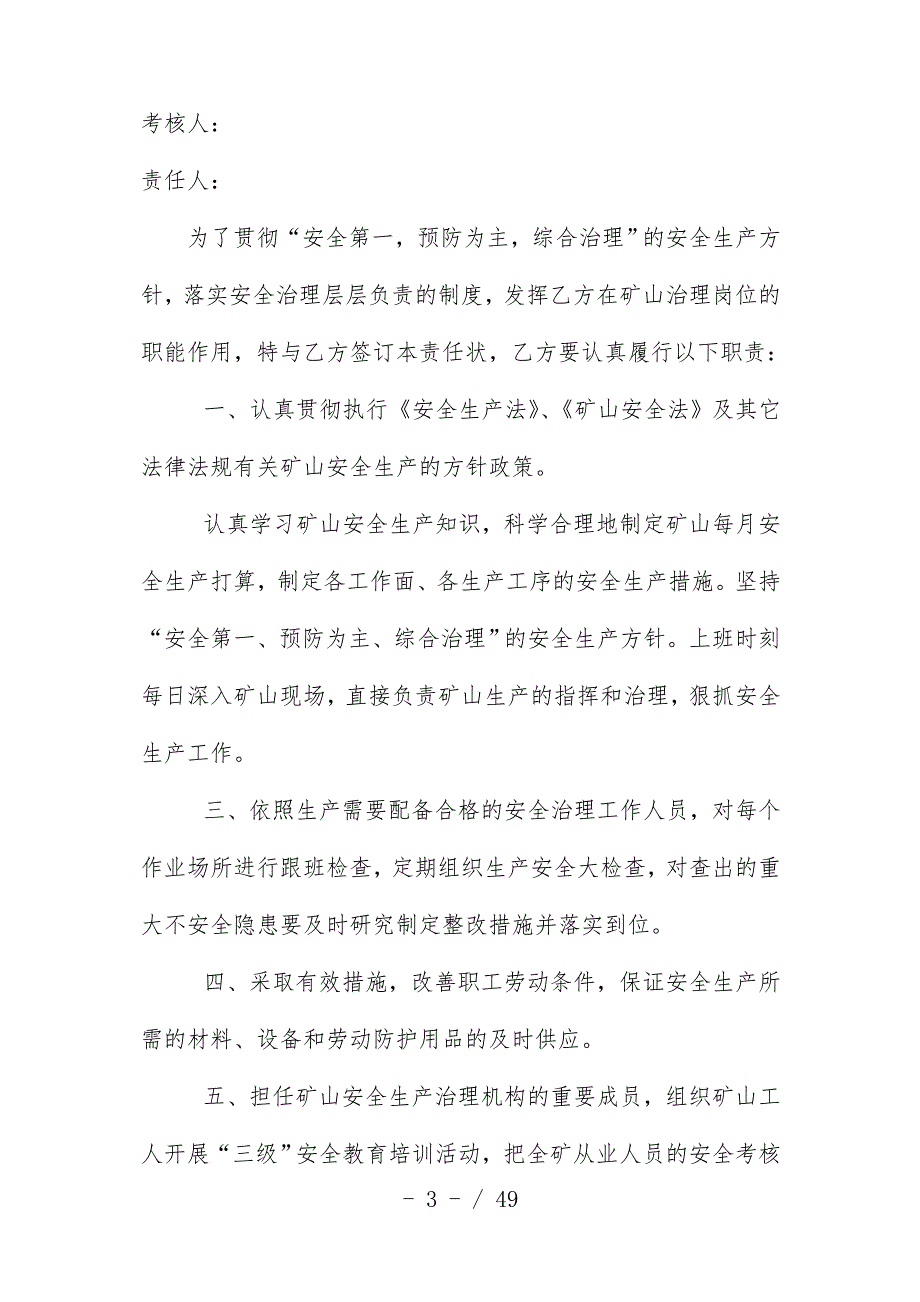 考核人：
责任人：
为了贯彻“安全第一，预防为主，综合治理”的安全生产方
针，落实安全治理层层负责的制度，发挥乙方在矿山治理岗位的
职能作用，特与乙方签订本责任状，乙方要认真履行以下职责：
一、认真贯彻执行《安全生产法》、《矿山安全法》及其它
法律法规有关矿山安全生产的方针政策。
认真学习矿山安全生产知识，科学合理地制定矿山每月安
全生产打算，制定各工作面、各生产工序的安全生产措施。坚持
“安全第一、预防为主、综合治理”的安全生产方针。上班时刻
每日深入矿山现场，直接负责矿山生产的指挥和治理，狠抓安全
生产工作。
三、依照生产需要配备合格的安全治理工作人员，对每个
作业场所进行跟班检查，定期组织生产安全大检查，对查出的重
大不安全隐患要及时研究制定整改措施并落实到位。
四、采取有效措施，改善职工劳动条件，保证安全生产所
需的材料、设备和劳动防护用品的及时供应。
五、担任矿山安全生产治理机构的重要成员，组织矿山工
人开展“三级”安全教育培训活动，把全矿从业人员的安全考核
- 3 - / 49